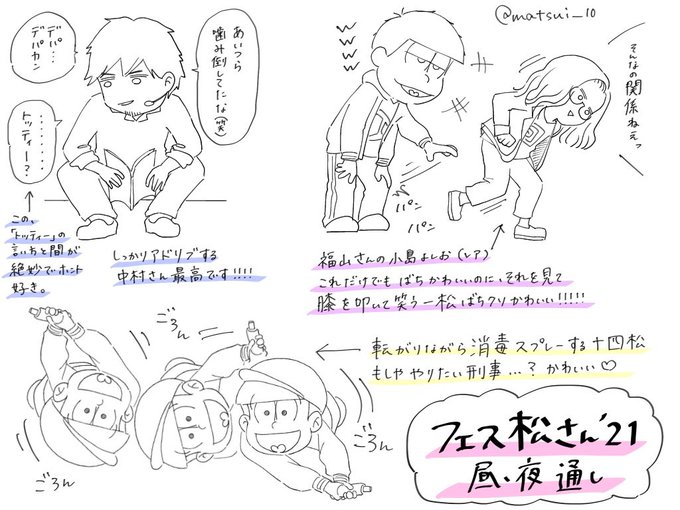 @matsui_10
あいつら
噛み倒してたな(笑)
デパ…
デパカン
………
トッティー?
この、
「トッティー」の
言い方と間が
絶妙でホント
好き。
しっかりアドリブする
中村さん最高です!!!!
wwww
そんなの関係ねぇっ
パン
パン
福山さんの小島よしお(レア)
これだけでもばちかわいいのに、それを見て
膝を叩いて笑う一松ばちクソかわいい!!!!!
ごろん
ごろん
ごろん
転がりながら消毒スプレーする十四松
もしややりたい刑事…?かわいい♡
フェス松さん'21
昼、夜通し